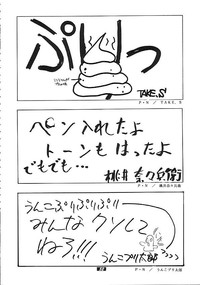 ぷりっ
TAKE.S'
P・N / TAKE.S
ペン入れたよ
トーンもはったよ
でもでも…
桃井奈々兵衛
P・N / 桃井奈々兵衛
うんこぷりぷりぷり
みんなクソして
ねろ!!!
うんこブリ太郎
P・N / うんこブリ太郎